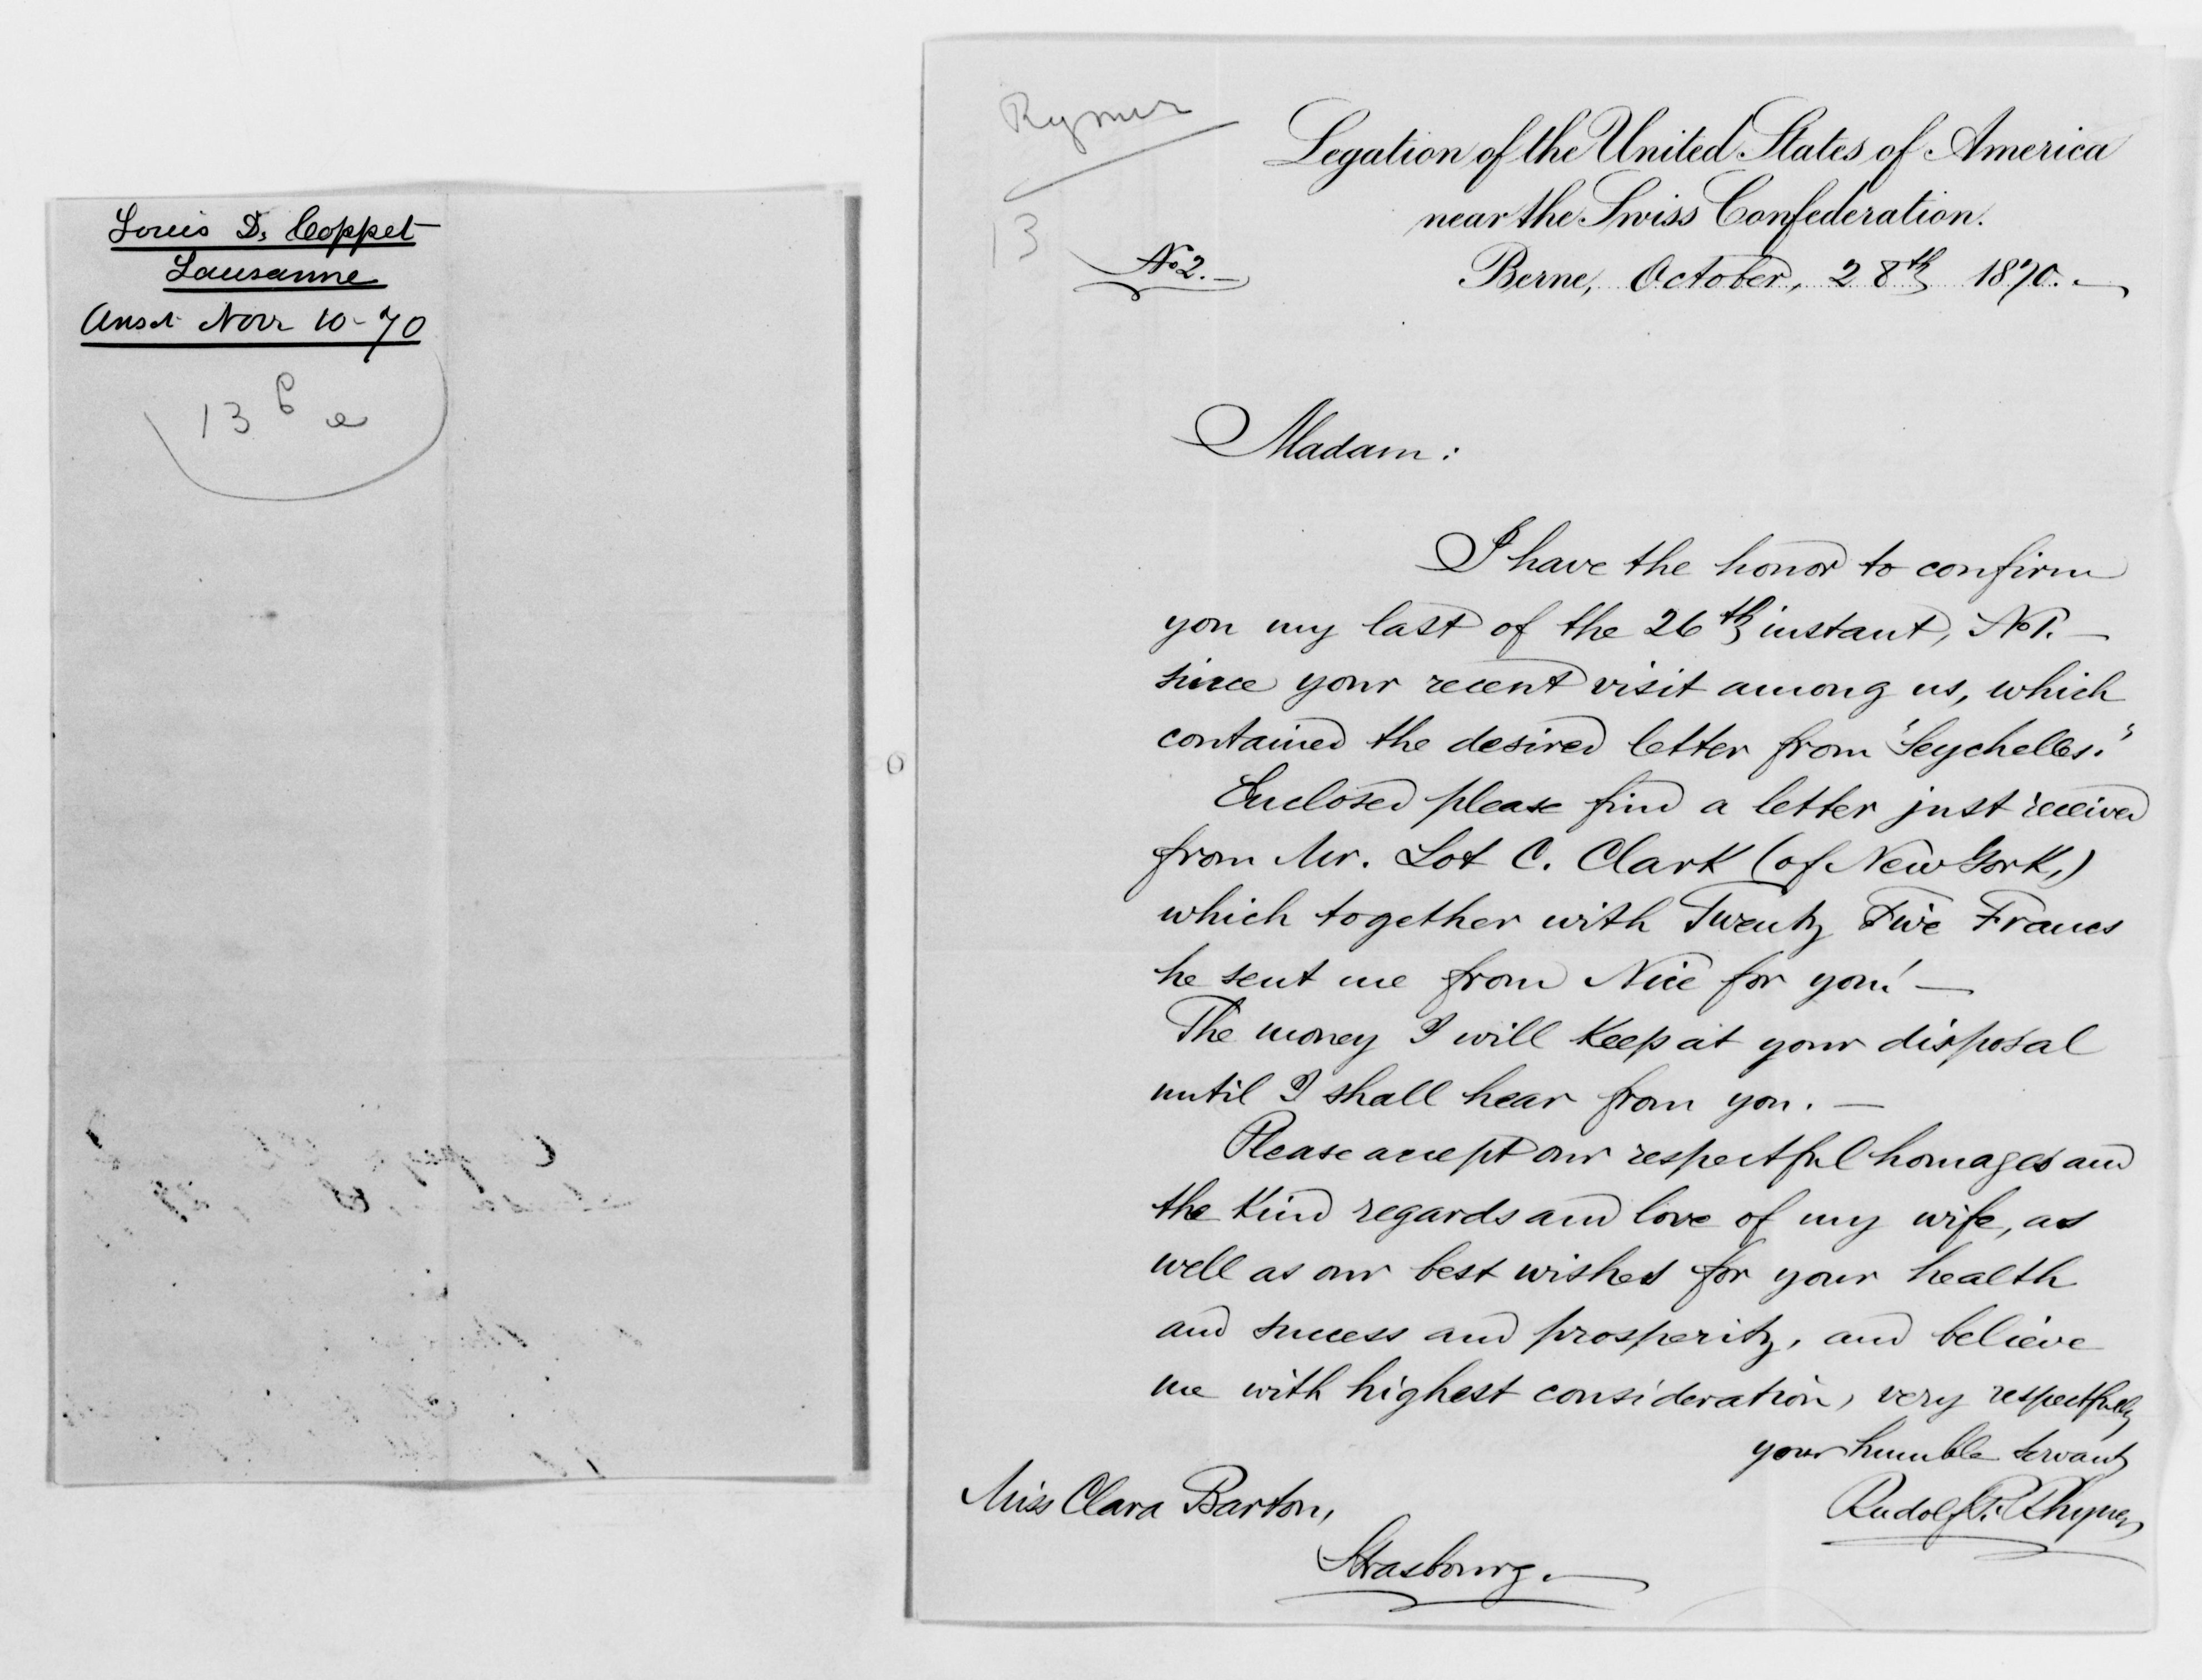 Louis D. Coppet
Lausanne
Ansd Novr 10-70
13
Rymer
13
Legation of the United States of America
near the Swiss Confederation.
No 2.
Berne, October, 28th 1870.
Madam:
I have the honor to confirm
you my last of the 26th instant, No 1. —
since your recent visit among us, which
contained the desired letter from "Seychelles."
Enclosed please find a letter just received
from Mr. Lot C. Clark (of New York,)
which together with Twenty Five Francs
he sent me from Nice for you! —
The money I will keep at your disposal
until I shall hear from you. —
Please accept our respectful homages and
the kind regards and love of my wife, as
well as our best wishes for your health
and success and prosperity, and believe
me with highest consideration, very respectfully
your humble servant
Rudolf P. Rhyner
Miss Clara Barton,
Strasbourg. —